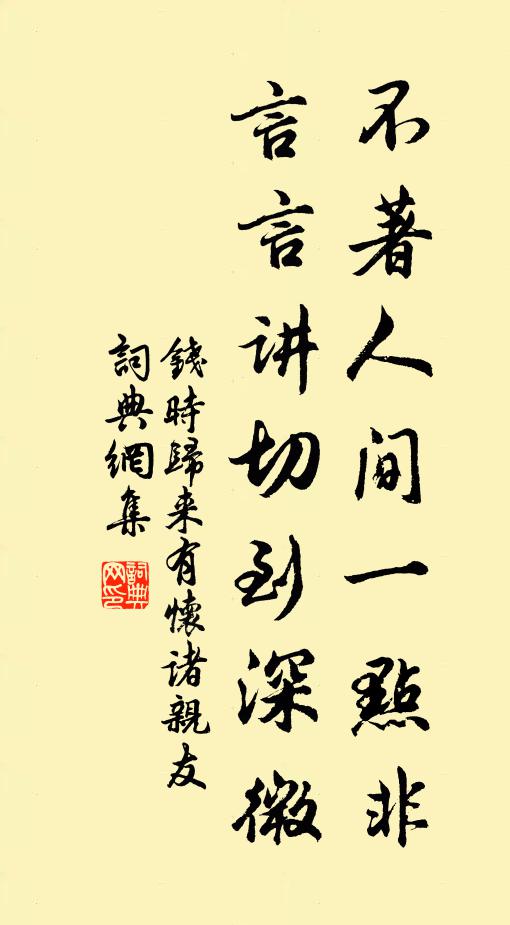 不著人间一點非
言言讲切到深微
錢時歸来有懷诸親友
詞典網集
詞典网印